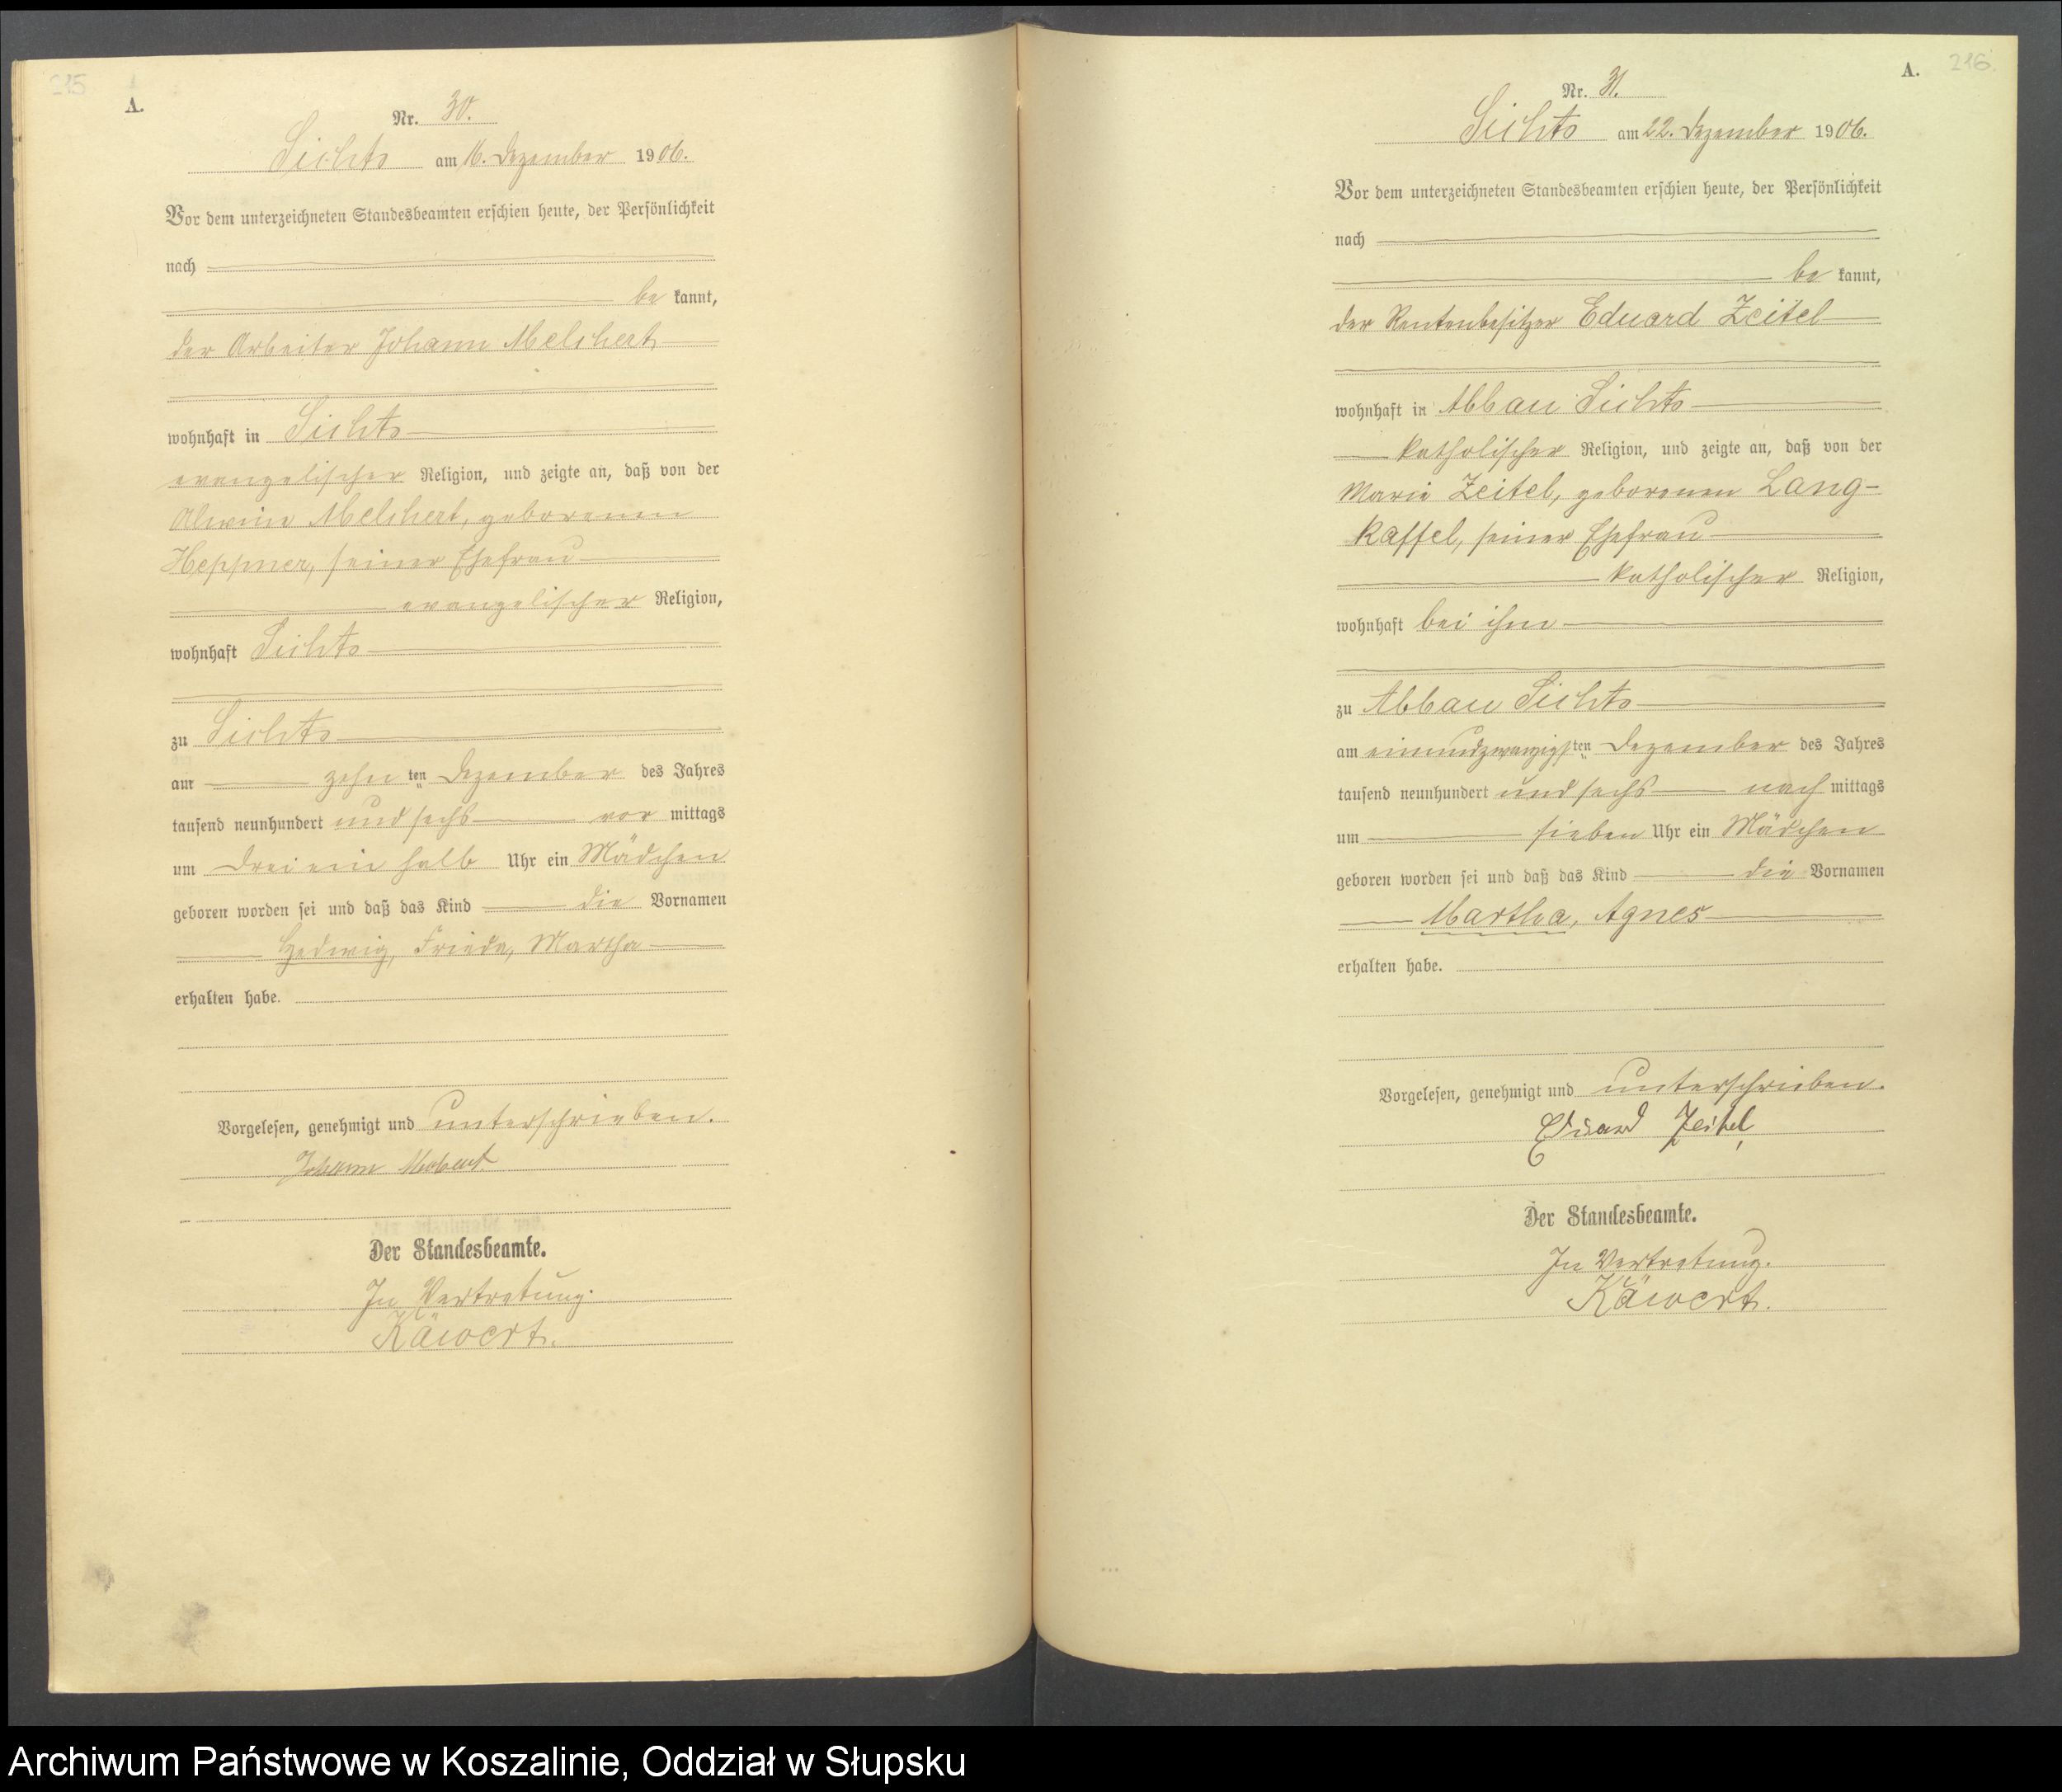 215
A.
Nr. 30.
Sichts am 16. Dezember 1906.
Vor dem unterzeichneten Standesbeamten erschien heute, der Persönlichkeit
nach
be kannt,
der Arbeiter Johann Melchert
wohnhaft in Sichts
evangelischer Religion, und zeigte an, daß von der
Alwine Melchert, geborenen
Heppner, seiner Ehefrau
evangelischer Religion,
wohnhaft Sichts
zu Sichts
am zehn ten Dezember des Jahres
tausend neunhundert und sechs vor mittags
um drei ein halb Uhr ein Mädchen
geboren worden sei und daß das Kind die Vornamen
Hedwig, Frieda, Martha
erhalten habe.
Vorgelesen, genehmigt und unterschrieben.
Johann Melchert
Der Standesbeamte.
In Vertretung.
Käwert.
A. 216
Nr. 31.
Sichts am 22. Dezember 1906.
Vor dem unterzeichneten Standesbeamten erschien heute, der Persönlichkeit
nach
be kannt,
der Rentenbesitzer Eduard Zeitel
wohnhaft in Abbau Sichts
katholischer Religion, und zeigte an, daß von der
Marie Zeitel, geborenen Lang-
kaffel, seiner Ehefrau
katholischer Religion,
wohnhaft bei ihm
zu Abbau Sichts
am einundzwanzigsten Dezember des Jahres
tausend neunhundert und sechs nach mittags
um sieben Uhr ein Mädchen
geboren worden sei und daß das Kind die Vornamen
Martha, Agnes
erhalten habe.
Vorgelesen, genehmigt und unterschrieben.
Eduard Zeitel
Der Standesbeamte.
In Vertretung.
Käwert.
Archiwum Państwowe w Koszalinie, Oddział w Słupsku